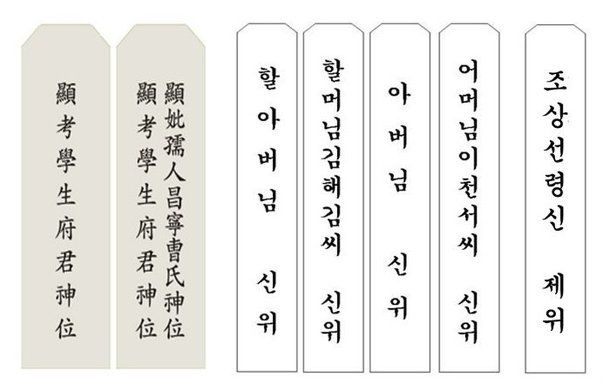 顯考學生府君神位
顯考學生府君神位
顯妣孺人昌寧曺氏神位
할아버님 신위
할머님김해김씨 신위
아버님 신위
어머님이천서씨 신위
조상선령신 제위